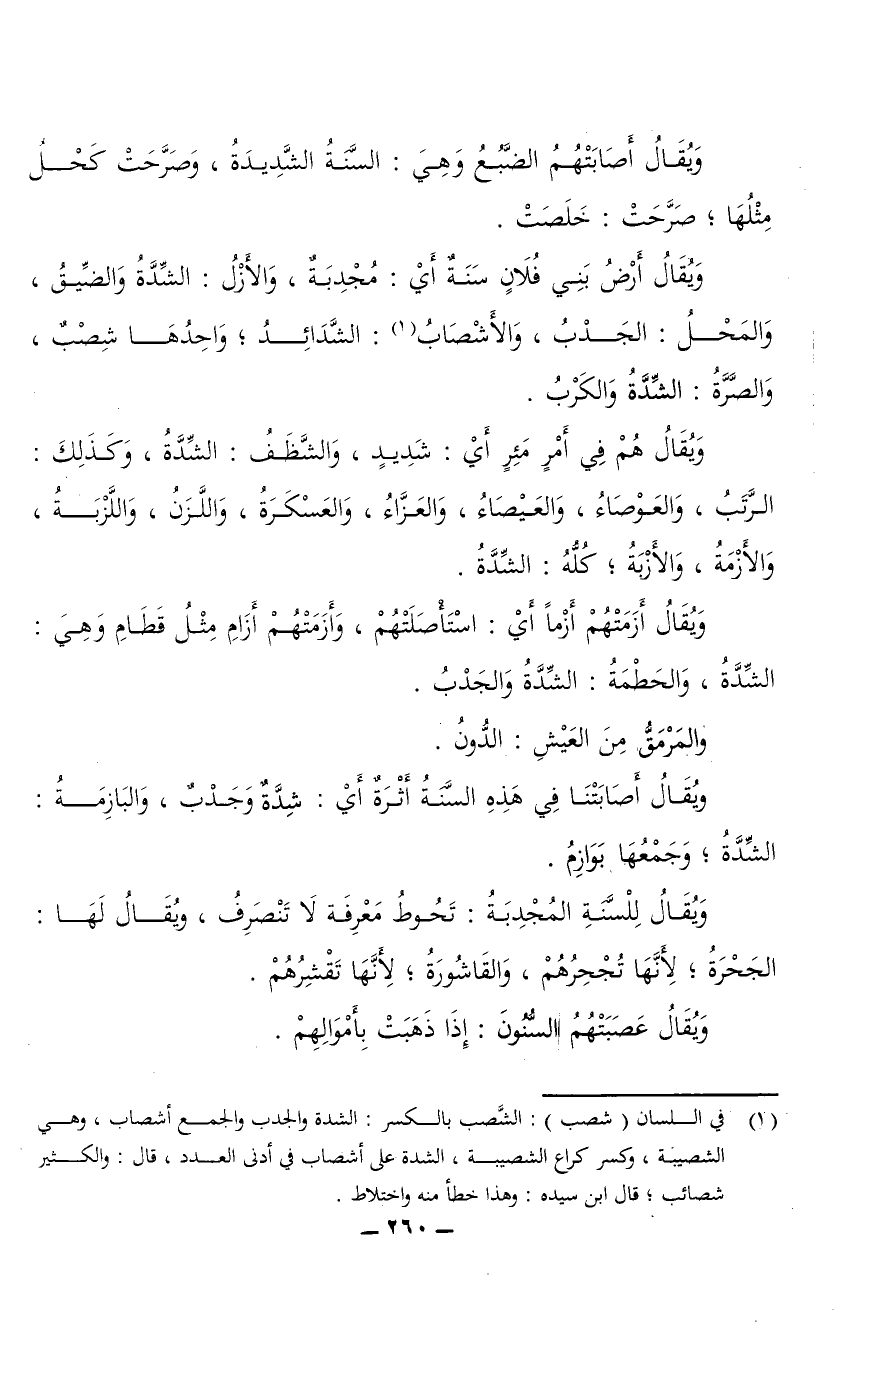 وَيُقَـالُ أَصَابَتْهُـمُ الضَّبُـعُ وَهِـيَ : السَّنَـةُ الشَّدِيـدَةُ ، وَصَرَّحَتْ كَحْـــلُ
مِثْلُهَا ؛ صَرَّحَتْ : خَلَصَتْ .
وَيُقَالُ أَرْضُ بَنِـي فُلَانٍ سَنَـةٌ أَيْ : مُجْدِبَـةٌ ، وَالأَزْلُ : الشِّدَّةُ وَالضِّيقُ ،
وَالمَحْـــلُ : الجَـــدْبُ ، وَالأَشْصَابُ(١) : الشَّدَائِـــدُ ؛ وَاحِدُهَـــا شِصْبٌ ،
وَالصَّرَّةُ : الشِّدَّةُ وَالكَرْبُ .
وَيُقَالُ هُمْ فِي أَمْرٍ مَئِرٍ أَيْ : شَدِيـدٍ ، وَالشَّظَـفُ : الشِّدَّةُ ، وَكَـذَلِكَ :
الـرَّتَبُ ، وَالعَـوْصَاءُ ، وَالعَـيْصَاءُ ، وَالعَـزَّاءُ ، وَالعَسْكَـرَةُ ، وَاللَّـزَنُ ، وَاللَّزْبَـــةُ ،
وَالأَزْمَةُ ، وَالأَزْبَةُ ؛ كُلُّهُ : الشِّدَّةُ .
وَيُقَالُ أَزَمَتْهُمْ أَزْماً أَيْ : اسْتَأْصَلَتْهُمْ ، وَأَزَمَتْهُـمْ أَزَامِ مِثْـلُ قَطَـامِ وَهِـيَ :
الشِّدَّةُ ، وَالحَطْمَةُ : الشِّدَّةُ وَالجَدْبُ .
والمَرْمَقُّ مِنَ العَيْشِ : الدُّونُ .
ويُقَـالُ أَصَابَتْنَـا فِي هَذِهِ السَّنَـةُ أَثْـرَةٌ أَيْ : شِدَّةٌ وَجَـدْبٌ ، وَالبَازِمَـــةُ :
الشِّدَّةُ ؛ وَجَمْعُهَا بَوَازِمُ .
وَيُقَـالُ لِلْسَّنَـةِ المُجْدِبَـةُ : تَحُـوطُ مَعْرِفَـة لَا تَنْصَرِفُ ، ويُقَـــالُ لَهَـــا :
الجَحْرَةُ ؛ لِأَنَّهَا تُجْحِرُهُمْ ، وَالقَاشُورَةُ ؛ لِأَنَّهَا تَقْشِرُهُمْ .
وَيُقَالُ عَصَبَتْهُمُ السُّنُونَ : إِذَا ذَهَبَتْ بِأَمْوَالِهِمْ .
(١) في اللـسان ( شصب ) : الشَّصب بالـكسر : الشدة والجدب والجمـع أشصاب ، وهـي
الشصيبة ، وكسر كراع الشصيبـــة ، الشدة على أشصاب في أدنى العـدد ، قال : والكـثير
شصائب ؛ قال ابن سيده : وهذا خطأ منه واختلاط .
ــ ٢٦٠ ــ